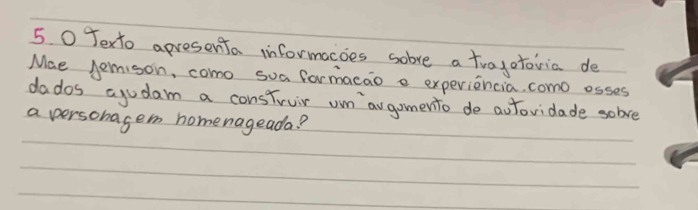 5. O Texto apresenta informações sobre a trajetória de
Mae Jemison, como sua formação e experiência. como esses
dados ajudam a construir um argumento de autoridade sobre
a personagem homenageada?